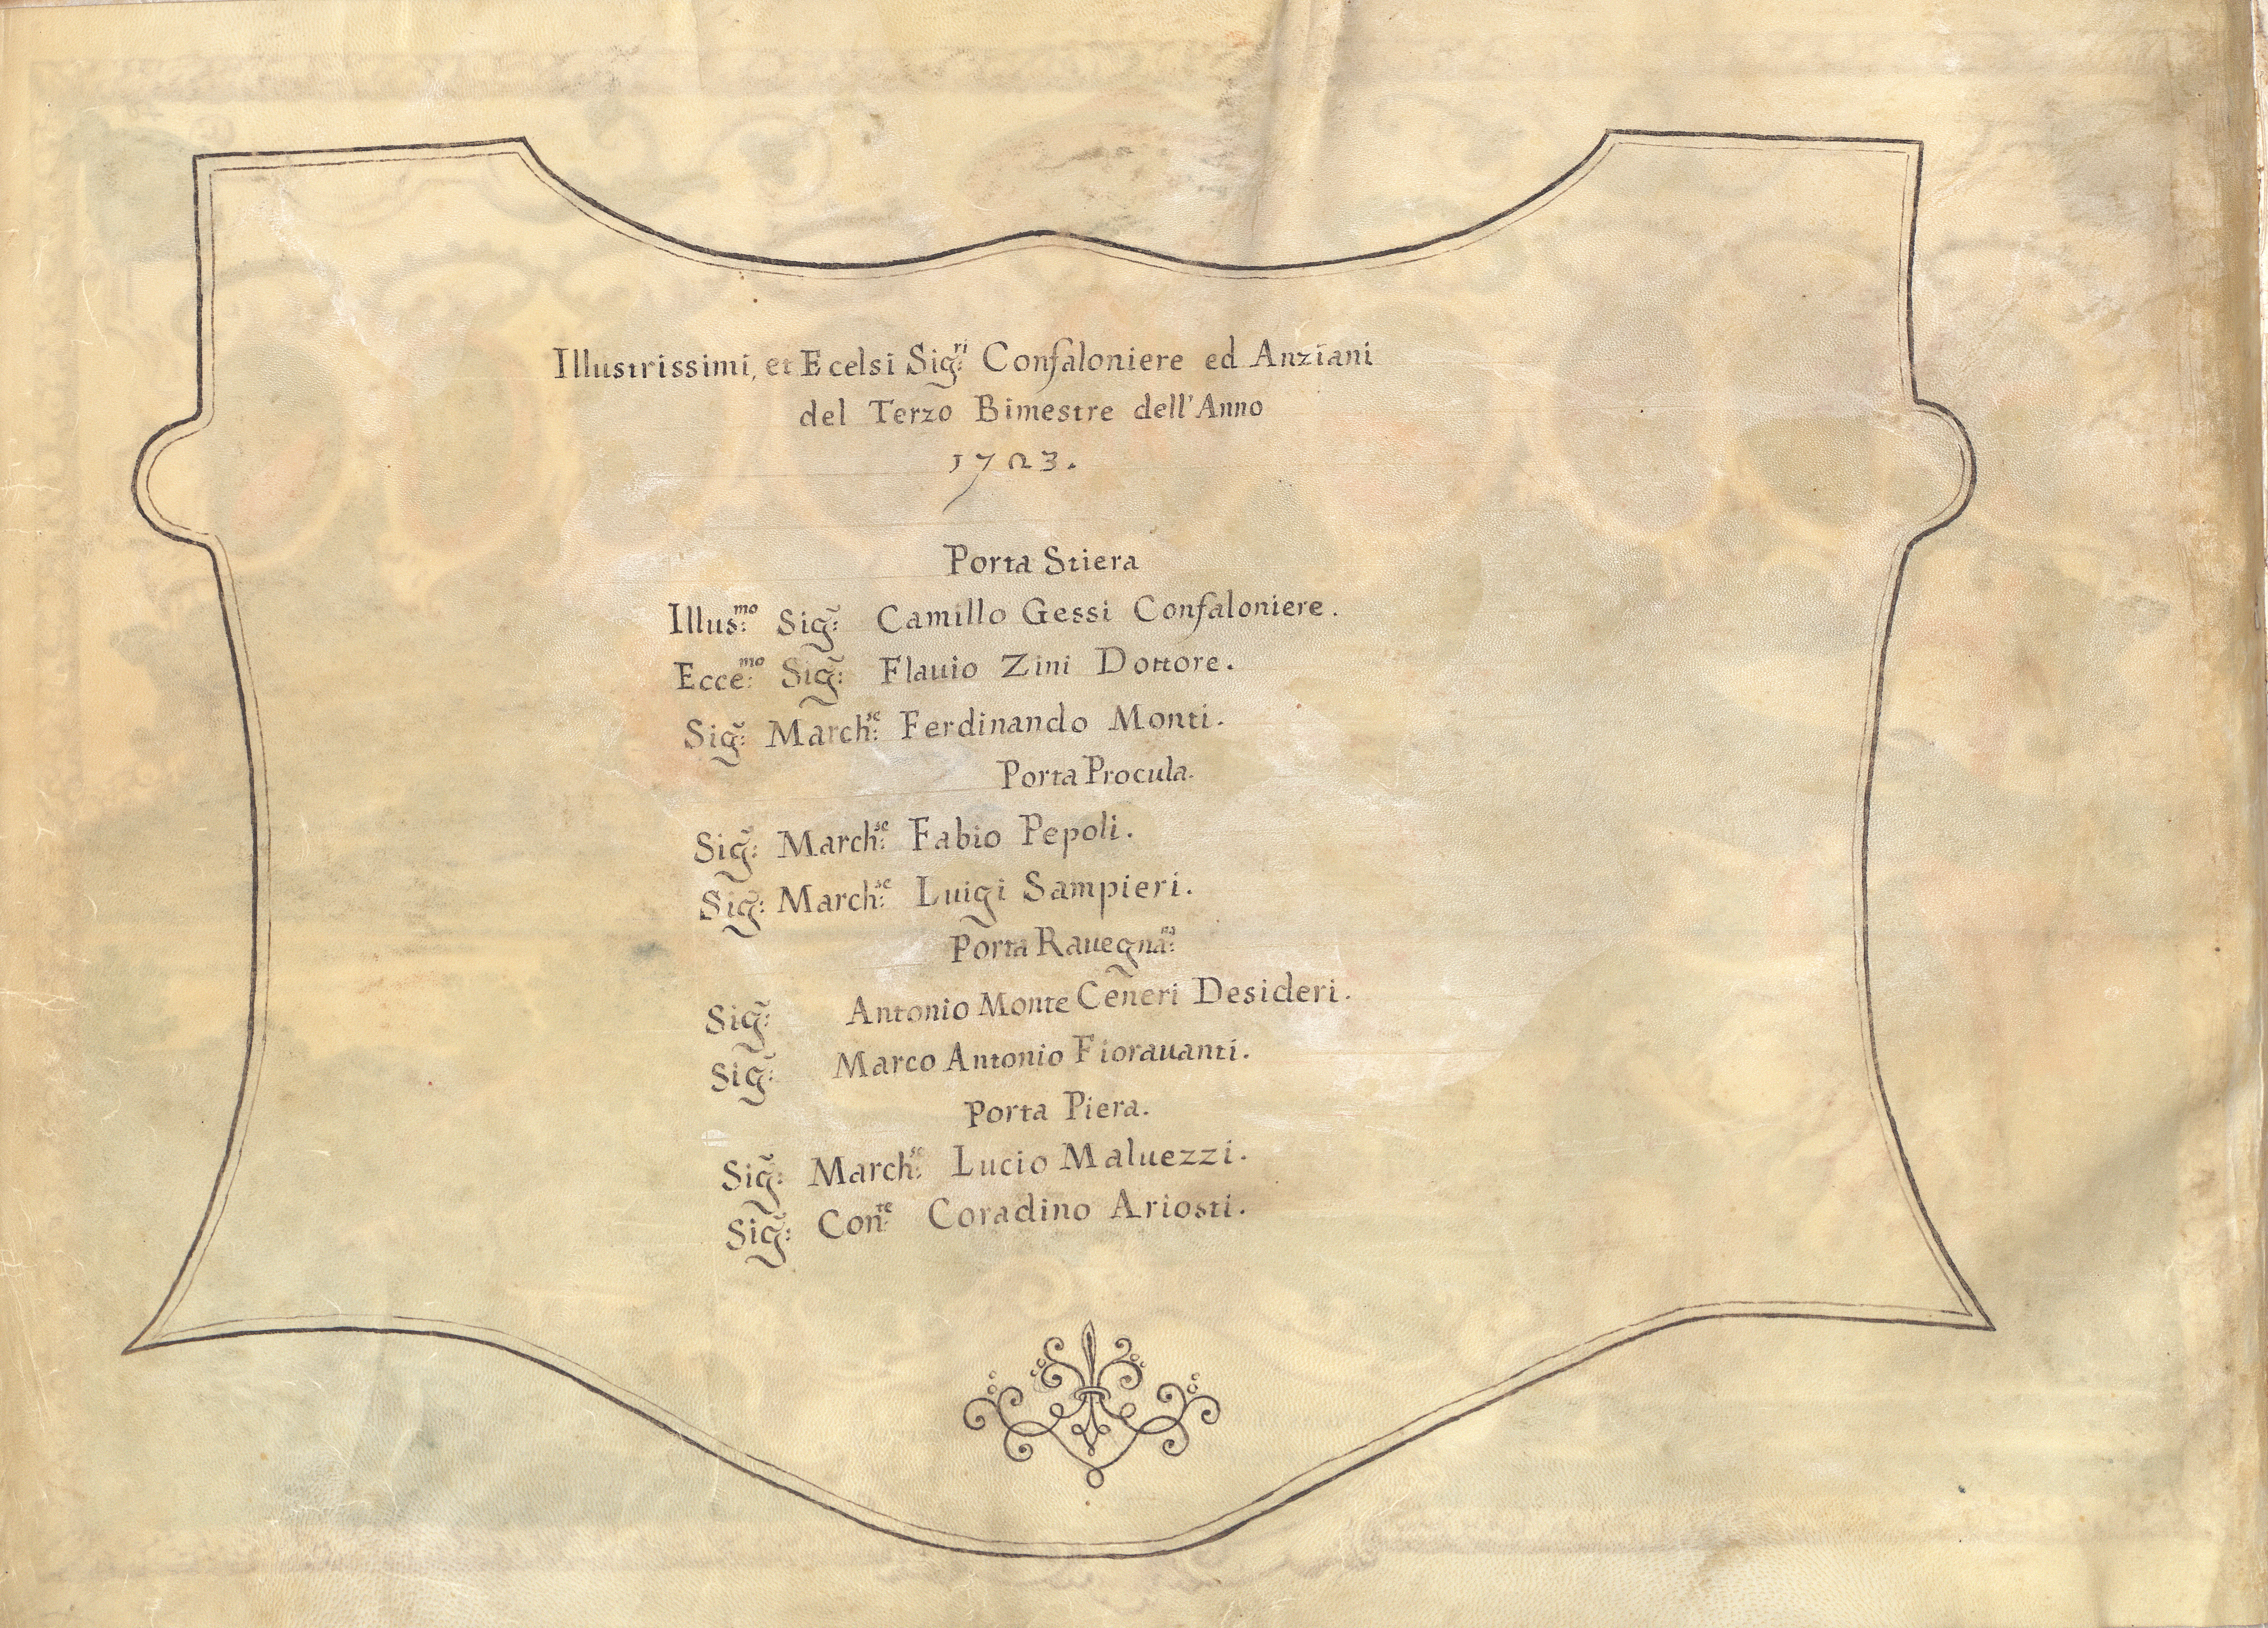 Illustrissimi, et Ecelsi Sig:ri Confaloniere ed Anziani
del Terzo Bimestre dell'Anno
1723.
Porta Stiera
Illus:mo Sig: Camillo Gessi Confaloniere.
Ecce:mo Sig: Flauio Zini Dottore.
Sig: March:se Ferdinando Monti.
Porta Procula.
Sig: March:se Fabio Pepoli.
Sig: March:se Luigi Sampieri.
Porta Rauegna:na
Sig: Antonio Monte Ceneri Desideri.
Sig: Marco Antonio Fiorauanti.
Porta Piera.
Sig: March:se Lucio Maluezzi.
Sig: Con:te Coradino Ariosti.